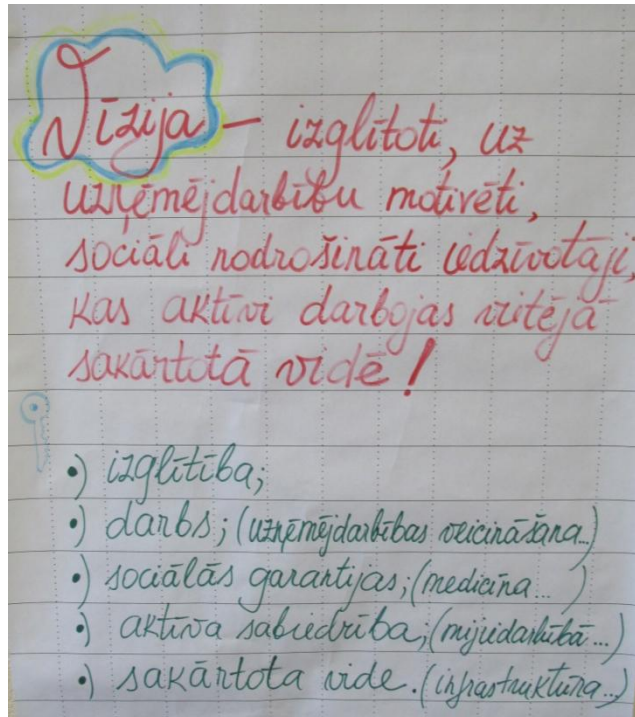 Vīzija – izglītoti, uz
uzņēmējdarbību motivēti,
sociāli nodrošināti iedzīvotāji,
kas aktīvi darbojas vietējā
sakārtotā vidē!
•) izglītība;
•) darbs; (uzņēmējdarbības veicināšana...)
•) sociālās garantijas; (medicīna... )
•) aktīva sabiedrība; (mijiedarbībā...)
•) sakārtota vide. (infrastruktūra...)